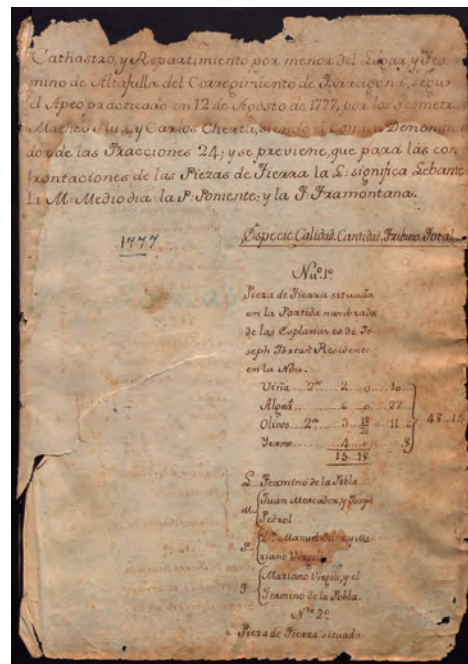 Cathastro, y Repartimiento por menor del Lugar y Ter
mino de Altafulla del Corregimiento de Tarragona, segun
el Apeo practicado en 12 de Agosto de 1777, por los Geometras
Matheo Ruix, y Carlos Cherta, siendo el Comun Denomina
dor de las Fracciones 24; y se previene, que para las con
frontaciones de las Piezas de Tierra la L: significa Lebante
la M: Mediodia: la P: Poniente; y la T: Tramontana.
1777
Especie. Calidad. Cantidad. Tributo. Total.
Nu.º 1.º
Pieza de Tierra situada
en la Partida nombrada
de las Esplanas, es de Jo-
seph Residente
en la Nou.
Viña 2.ª 2 0 10
Algarª 6 0 27
Olivos 2.ª 3 18/24 11
Yermo 4 0
15 18
48
L Termino de la Pobla
M Juan Mercader, y Joseph
Pedrol
P D.n Manuel y Ma-
riano Virgili
T Mariano Virgili, y el
Termino de la Pobla.
Nº 2º
Pieza de Tierra situada